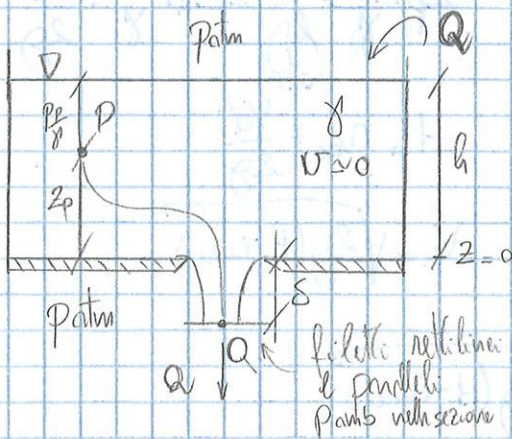 Patm
Q
Pp/γ
P
γ
v ≃ 0
h
Zp
Z=0
Patm
δ
Q
Q
filetti rettilinei
e paralleli
Pamb nella sezione